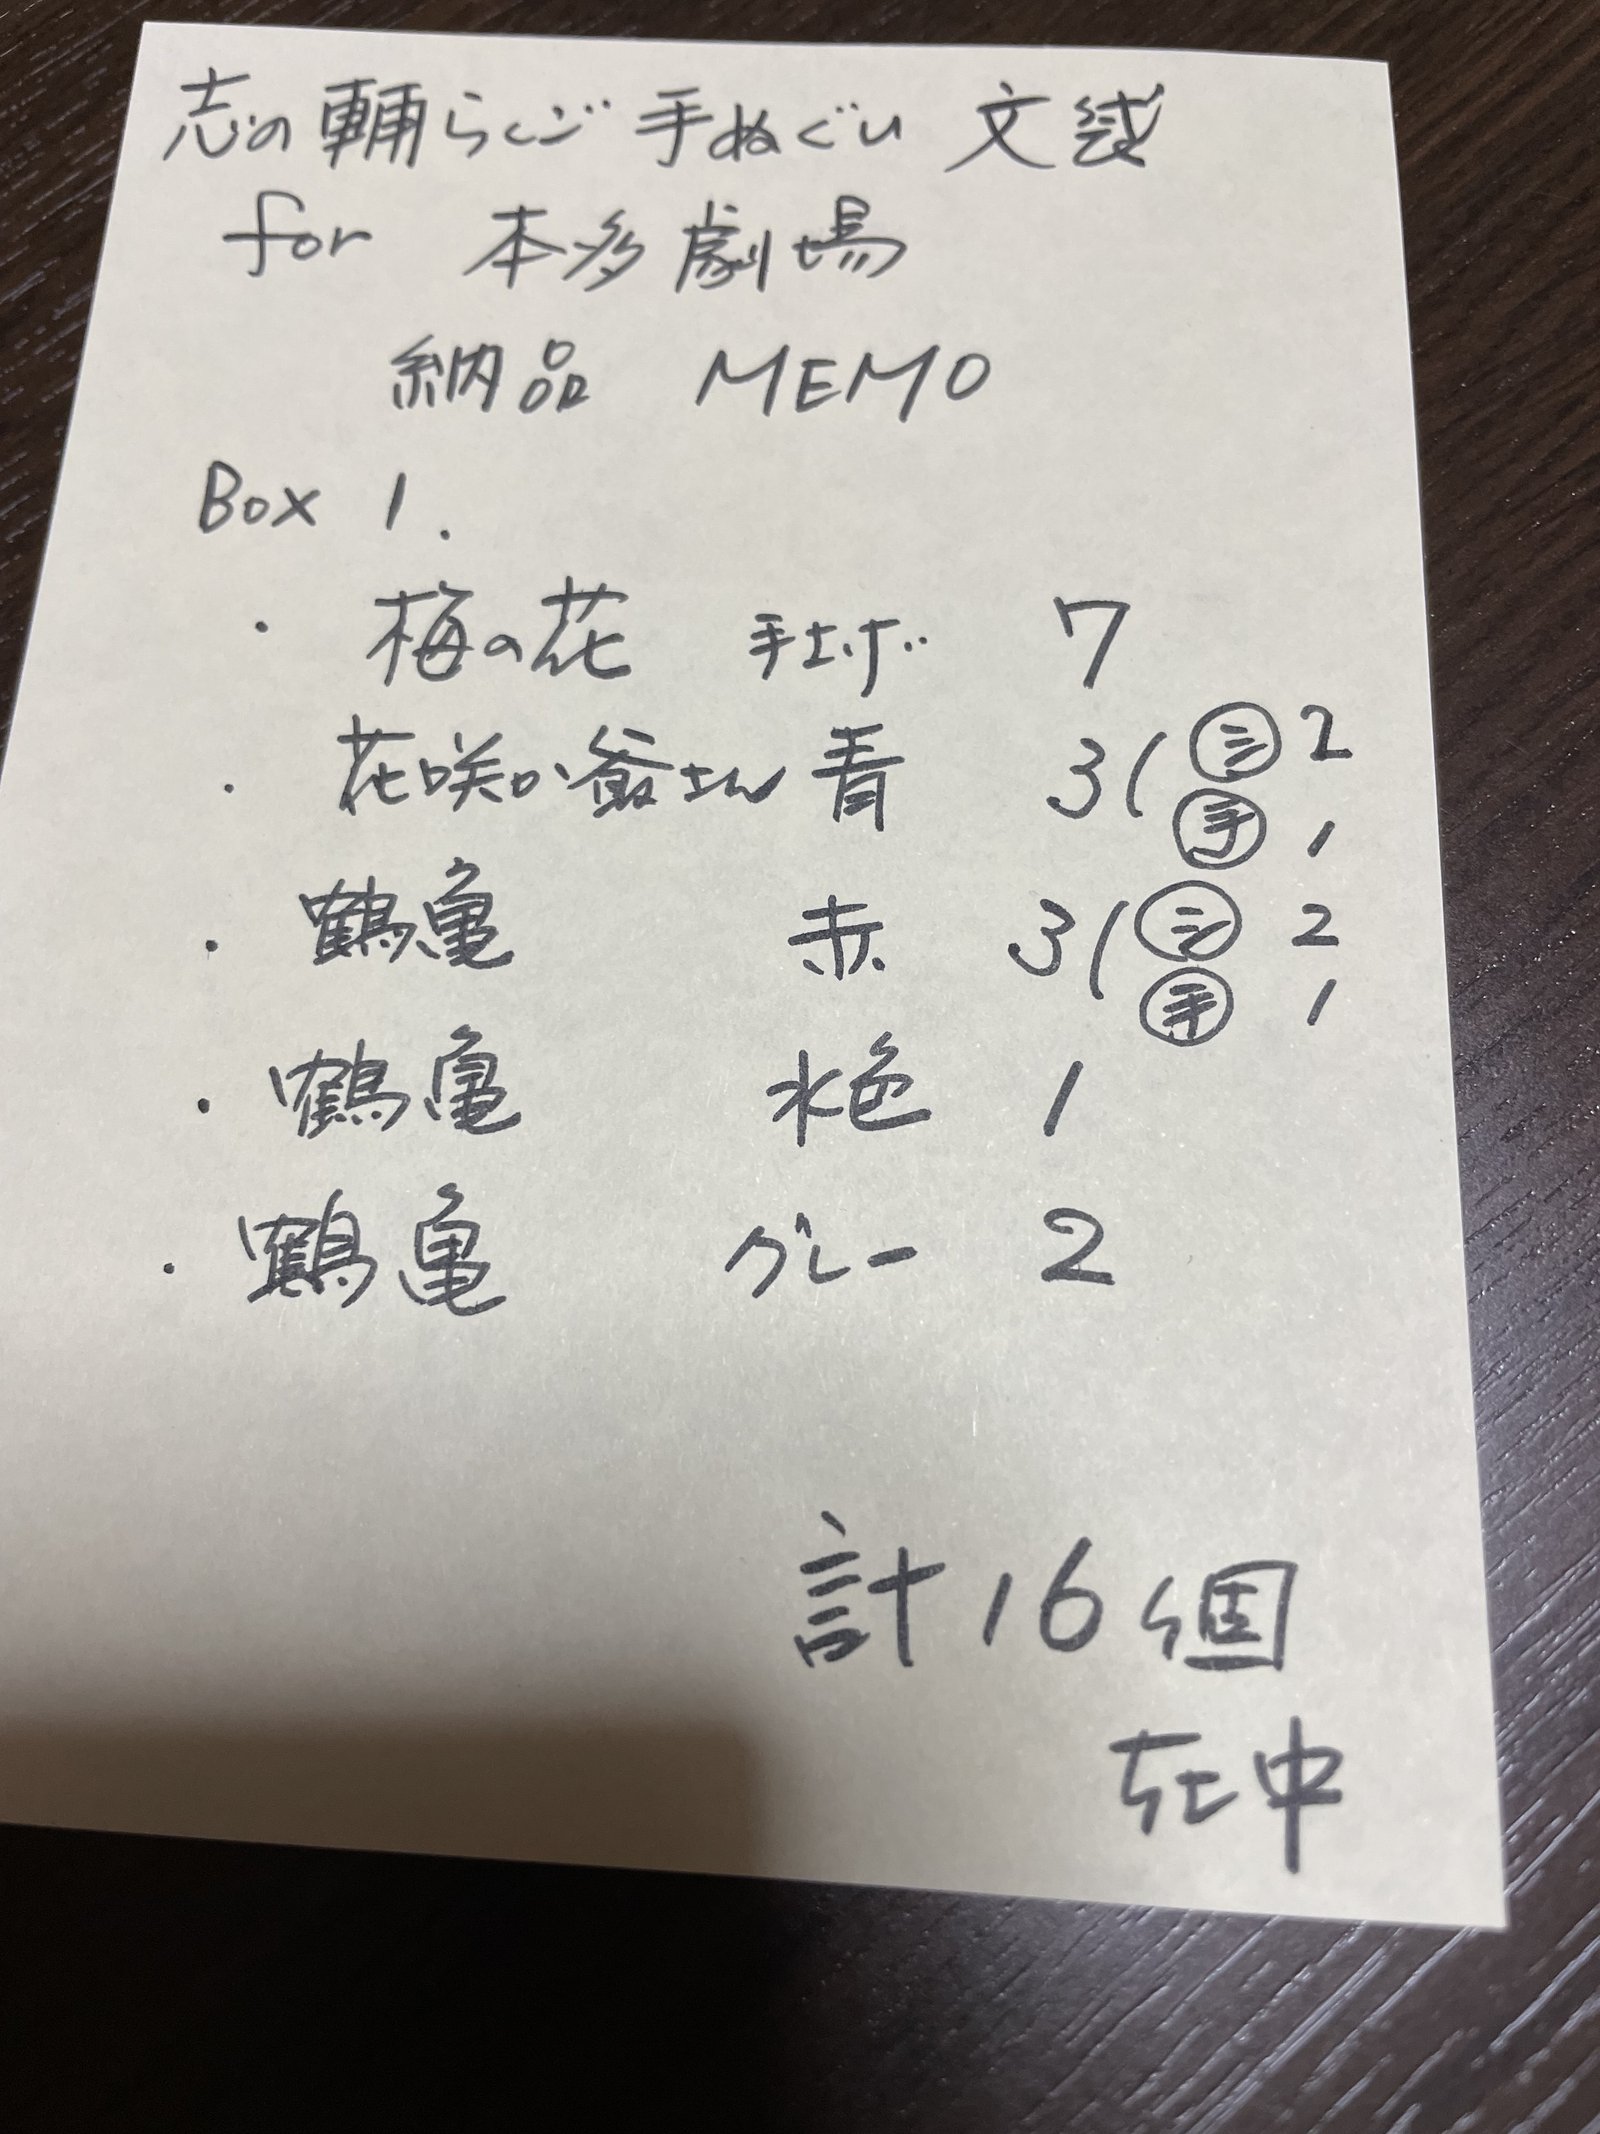 志の輔らくご 手ぬぐい 文袋
for 本多劇場
納品 MEMO
Box 1.
・ 梅の花 手さげ 7
・ 花咲か爺さん 青 3( ㋛ 2
手 1
・ 鶴亀 赤 3( ㋛ 2
手 1
・ 鶴亀 水色 1
・ 鶴亀 グレー 2
計16個
在中